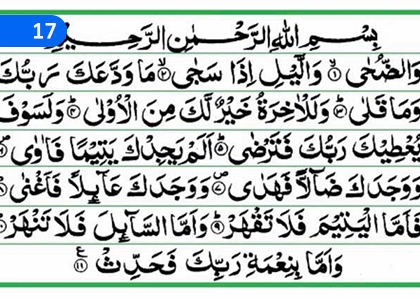 17
بِسْمِ اللهِ الرَّحْمٰنِ الرَّحِيْمِ
وَالضُّحٰى ۙ۱ وَالَّيْلِ اِذَا سَجٰى ۙ۲ مَا وَدَّعَكَ رَبُّكَ
وَمَا قَلٰى ؕ۳ وَلَلْاٰخِرَةُ خَيْرٌ لَّكَ مِنَ الْاُوْلٰى ؕ۴ وَلَسَوْفَ
يُعْطِيْكَ رَبُّكَ فَتَرْضٰى ؕ۵ اَلَمْ يَجِدْكَ يَتِيْمًا فَاٰوٰى ۪۶
وَوَجَدَكَ ضَآلًّا فَهَدٰى ۪۷ وَوَجَدَكَ عَآئِلًا فَاَغْنٰى ؕ۸
فَاَمَّا الْيَتِيْمَ فَلَا تَقْهَرْ ؕ۹ وَاَمَّا السَّآئِلَ فَلَا تَنْهَرْ ؕ۱۰
وَاَمَّا بِنِعْمَةِ رَبِّكَ فَحَدِّثْ ۱۱ ع